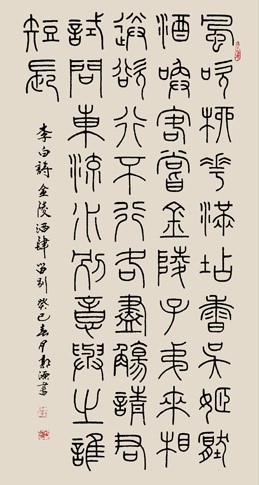 風吹柳花滿坫香吳姬壓
酒喚客嘗金陵子弟來相
送欲行不行各盡觴請君
試問東流水別意與之誰
短長
李白詩金陵酒肆留別癸巳春月書